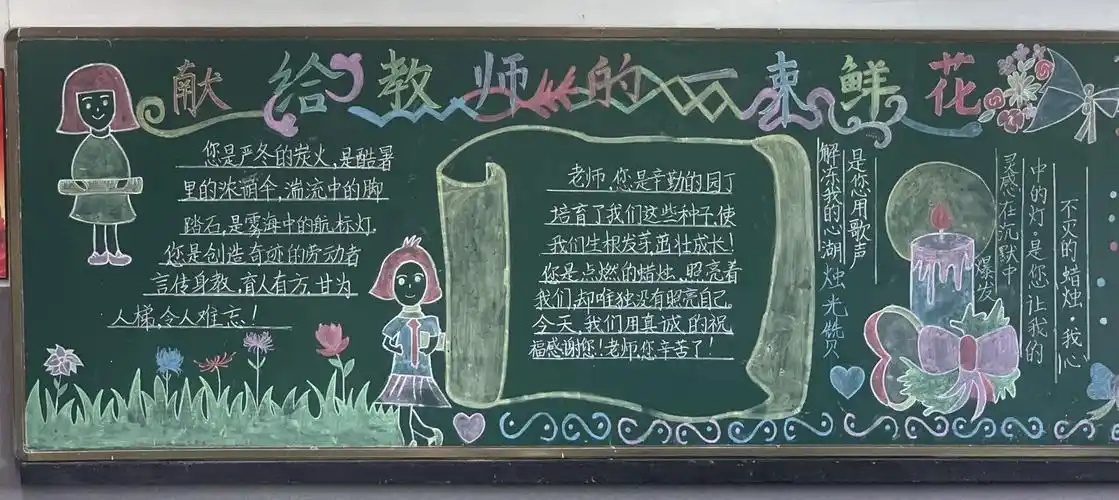 献给教师的一束鲜花
您是严冬的炭火,是酷暑
里的浓荫伞,湍流中的脚
踏石,是雾海中的航标灯.
您是创造奇迹的劳动者
言传身教,育人有方,甘为
人梯,令人难忘!
老师,您是辛勤的园丁
培育了我们这些种子,使
我们生根发芽,茁壮成长!
您是点燃的蜡烛,照亮着
我们,却唯独没有照亮自己。
今天,我们用真诚的祝
福感谢您!老师,您辛苦了!
烛光赞
不灭的蜡烛·我心
中的灯·是您让我的
灵感在沉默中
爆发
是您用歌声
解冻我的心湖